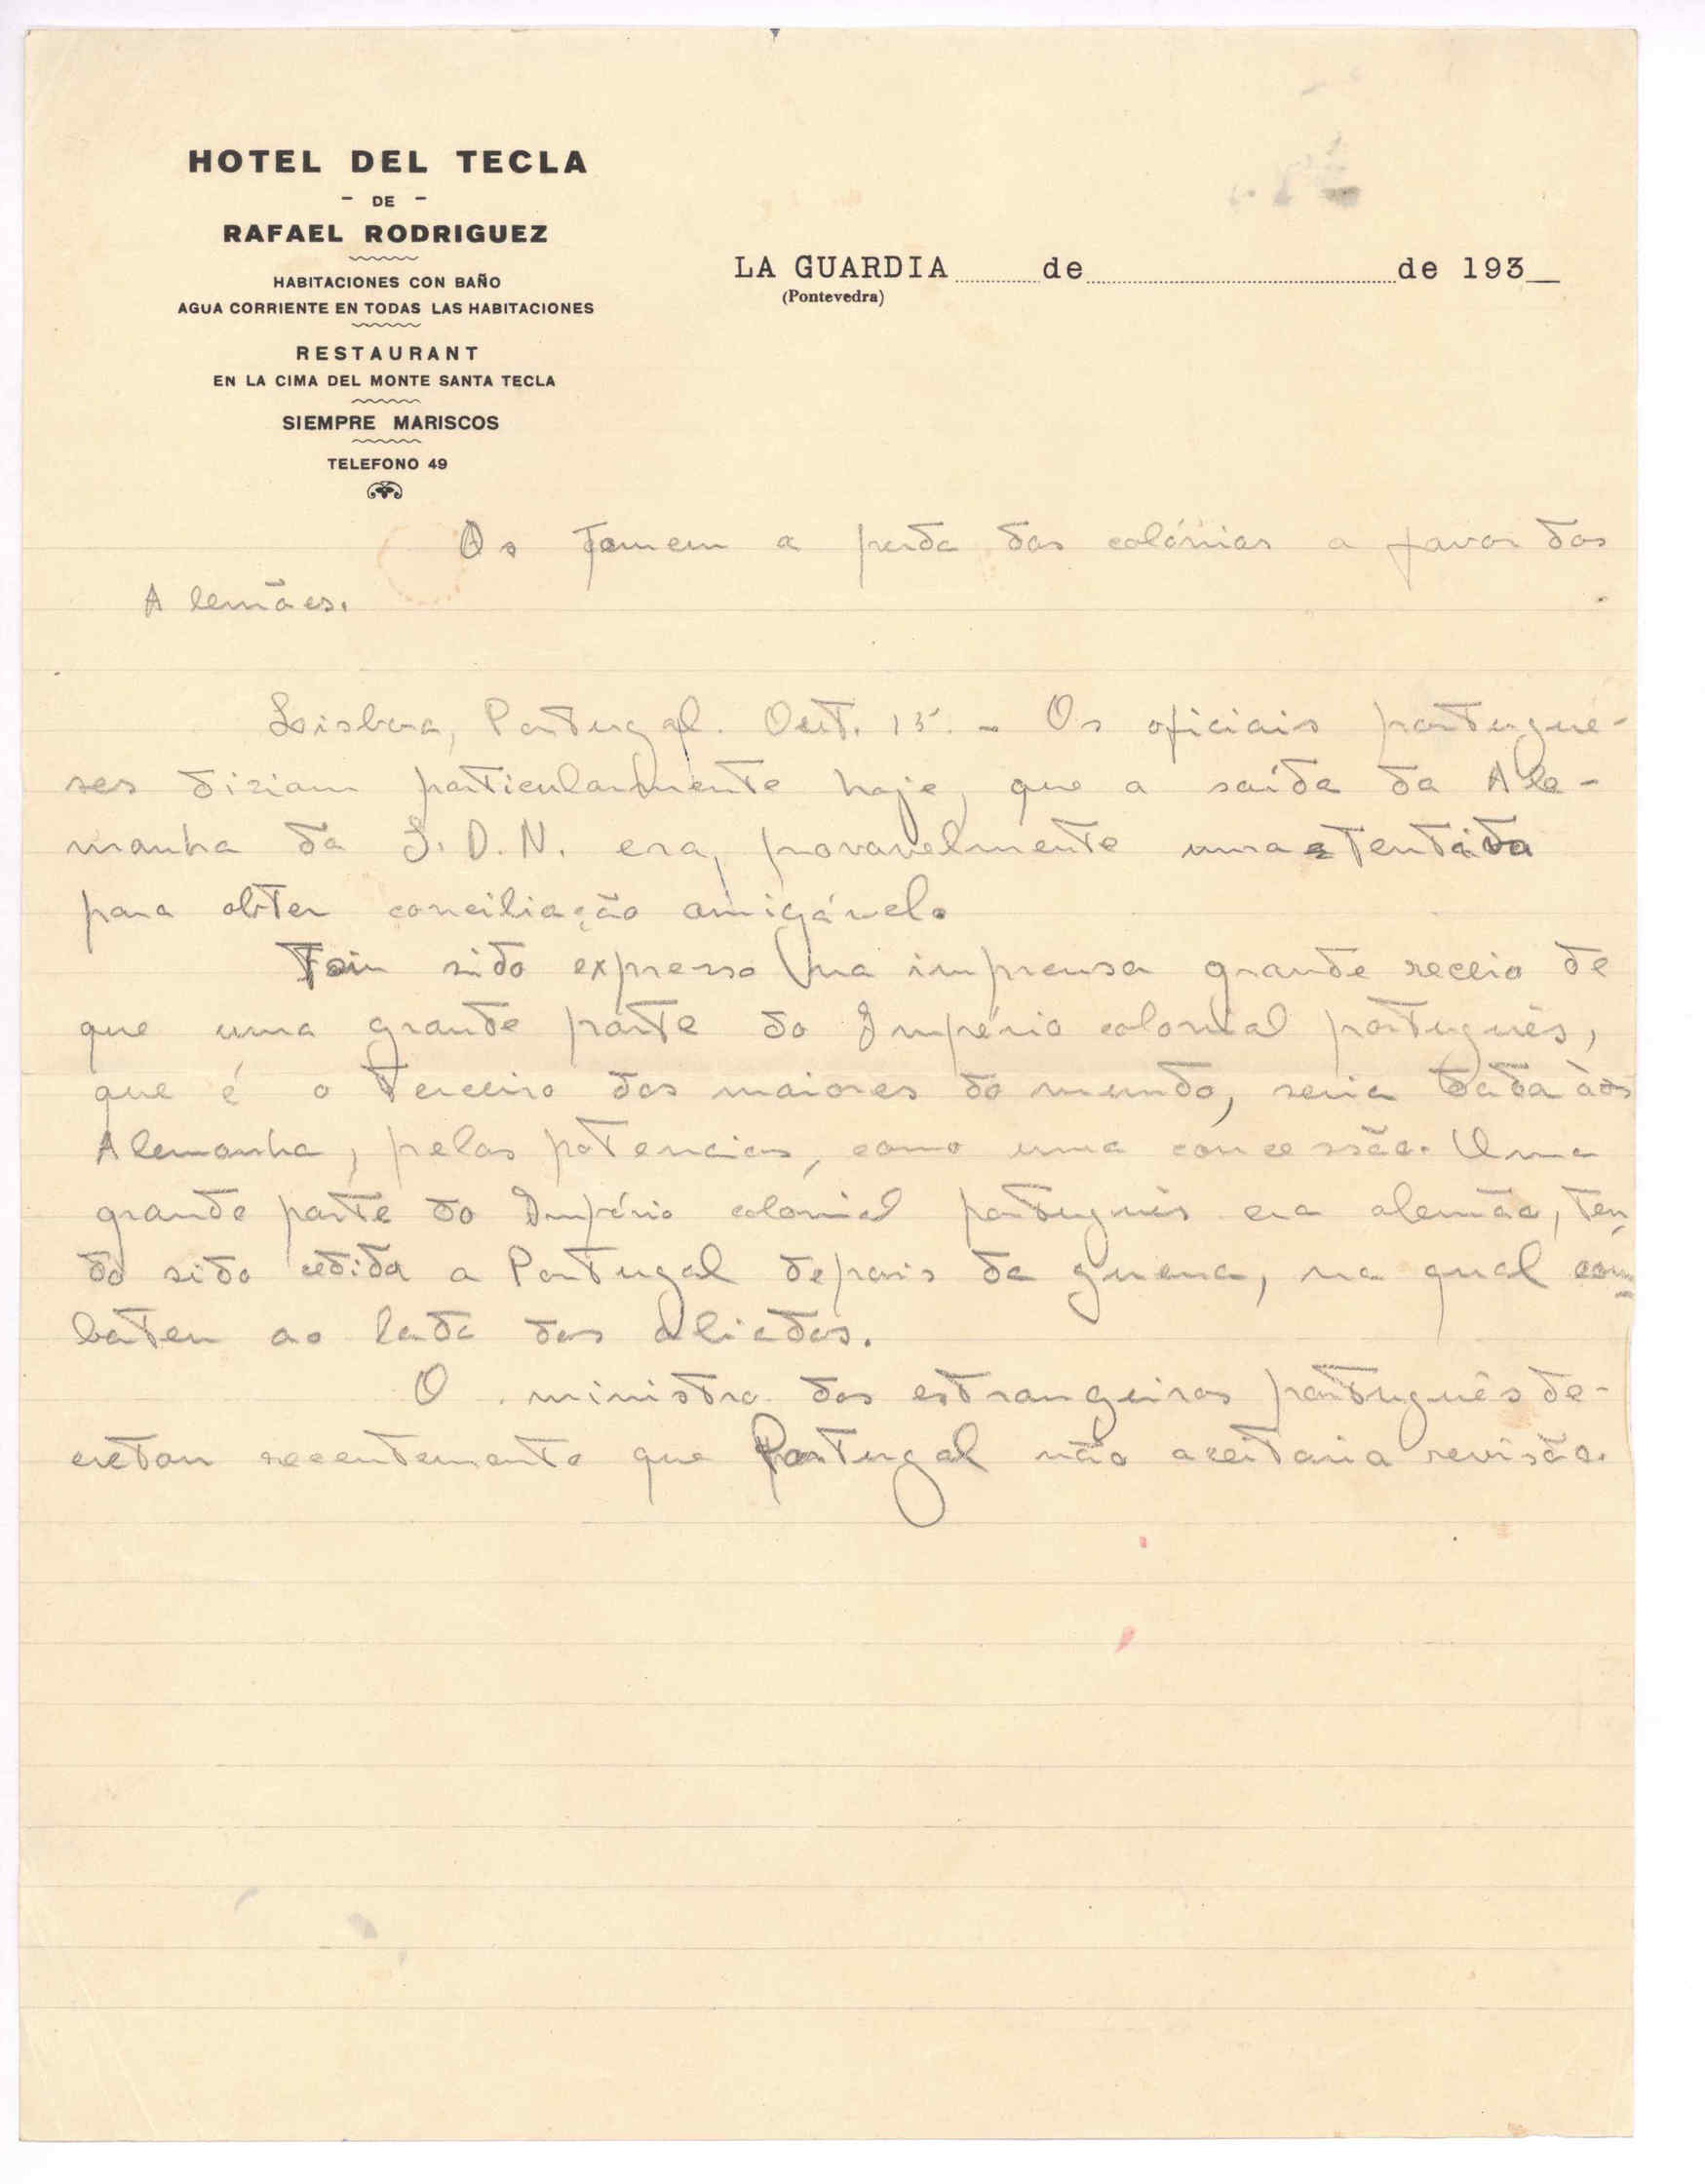 HOTEL DEL TECLA
- DE -
RAFAEL RODRIGUEZ
HABITACIONES CON BAÑO
AGUA CORRIENTE EN TODAS LAS HABITACIONES
RESTAURANT
EN LA CIMA DEL MONTE SANTA TECLA
SIEMPRE MARISCOS
TELEFONO 49
LA GUARDIA ...... de ...................... de 193_
(Pontevedra)
Os temem a perda das colónias a favor dos
Alemães.
Lisboa, Portugal. Out. 15. - Os oficiais portugue-
ses diziam particularmente hoje, que a saída da Ale-
manha da S.D.N. era, provavelmente uma tentativa
para obter conciliação amigável.
Tem sido expresso na imprensa grande receio de
que uma grande parte do Império colonial português,
que é o terceiro dos maiores do mundo, seria dada à
Alemanha, pelas potencias, como uma concessão. Uma
grande parte do Império colonial português era alemão, ten
do sido cedida a Portugal depois da guerra, na qual com
bateu ao lado dos aliados.
O ministro dos estrangeiros português de-
cretou recentemente que Portugal não aceitaria revisão.